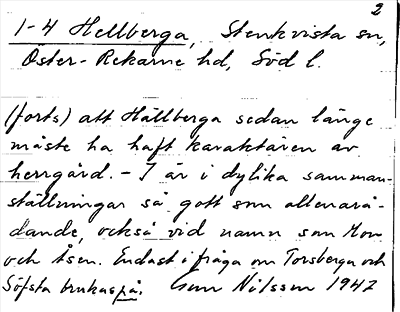 2
1-4 Hellberga, Stenkvista sn,
Öster-Rekarne hd, Söd l.
(forts) att Hällberga sedan länge
måste ha haft karaktären av
herrgård. - I är i dylika samman-
ställningar så gott som allenarå-
dande, också vid namn som Mon
och Åsen. Endast i fråga om Torsberga och
Söfsta brukas på. Gun Nilsson 1947